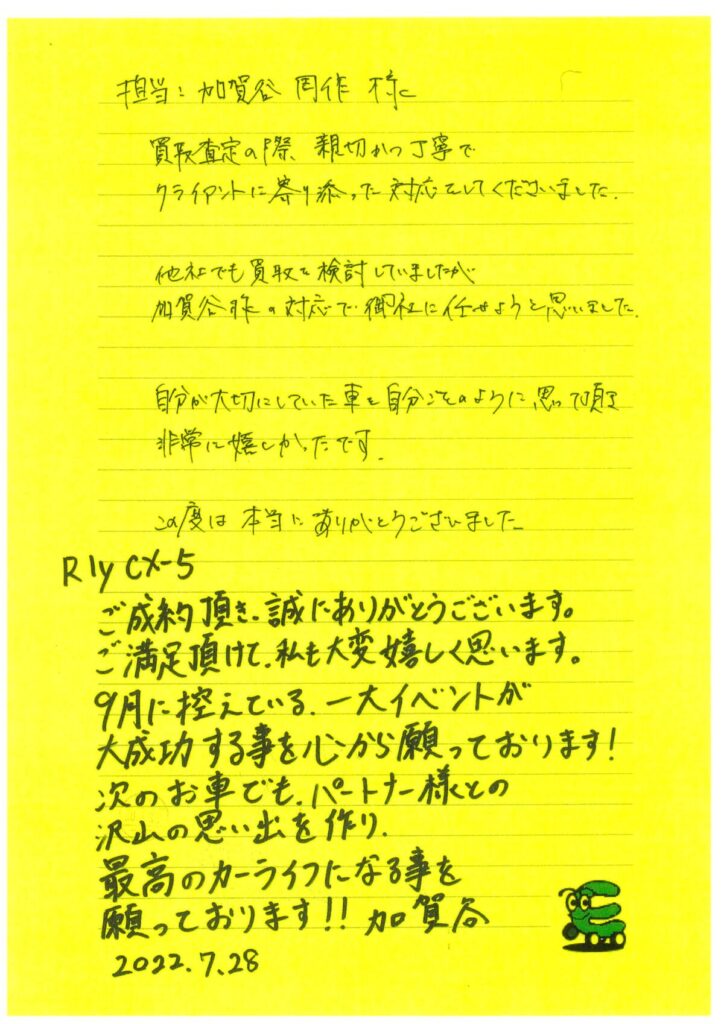 担当：加賀谷 周作 様に
買取査定の際、親切かつ丁寧で
クライアントに寄り添った対応をしてくださいました．
他社でも買取を検討していましたが
加賀谷様の対応で御社に任せようと思いました．
自分が大切にしていた車を自分ごとのように思って頂き
非常に嬉しかったです．
この度は本当にありがとうございました
R1y CX-5
ご成約頂き、誠にありがとうございます。
ご満足頂けて、私も大変嬉しく思います。
9月に控えている、一大イベントが
大成功する事を心から願っております！
次のお車でも、パートナー様との
沢山の思い出を作り、
最高のカーライフになる事を
願っております！！ 加賀谷
2022.7.28